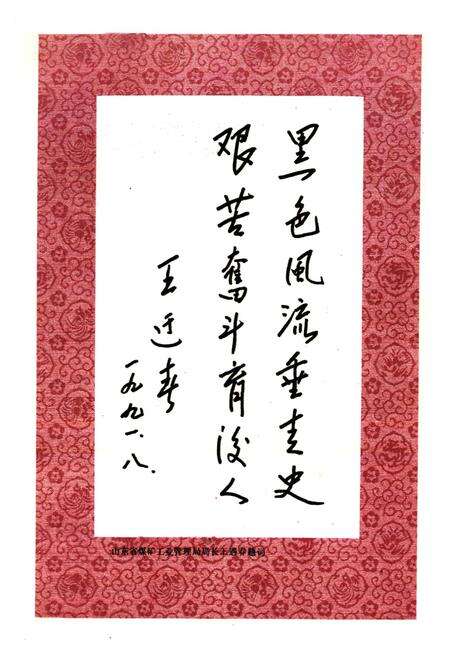 黑色風流垂青史
艰苦奮斗育後人
王遇春
一九九一、八.
山东省煤矿工业管理局局长王遇春题词